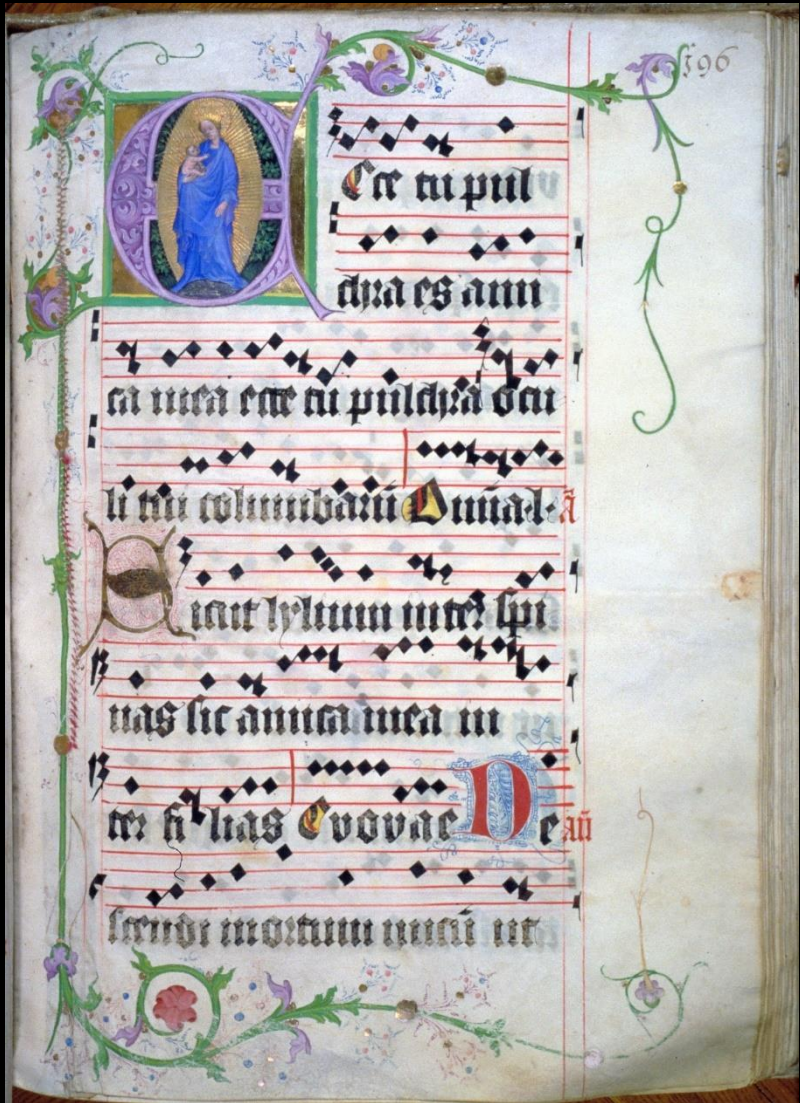 196
Ecce tu pul
chra es ami
ca mea ecce tu pulchra ocu
li tui columbarū Dumal. ā
Sicut lylium inter spi
nas sic amica mea in
ter filias Evovae De aū
scendi in ortum nucū ut